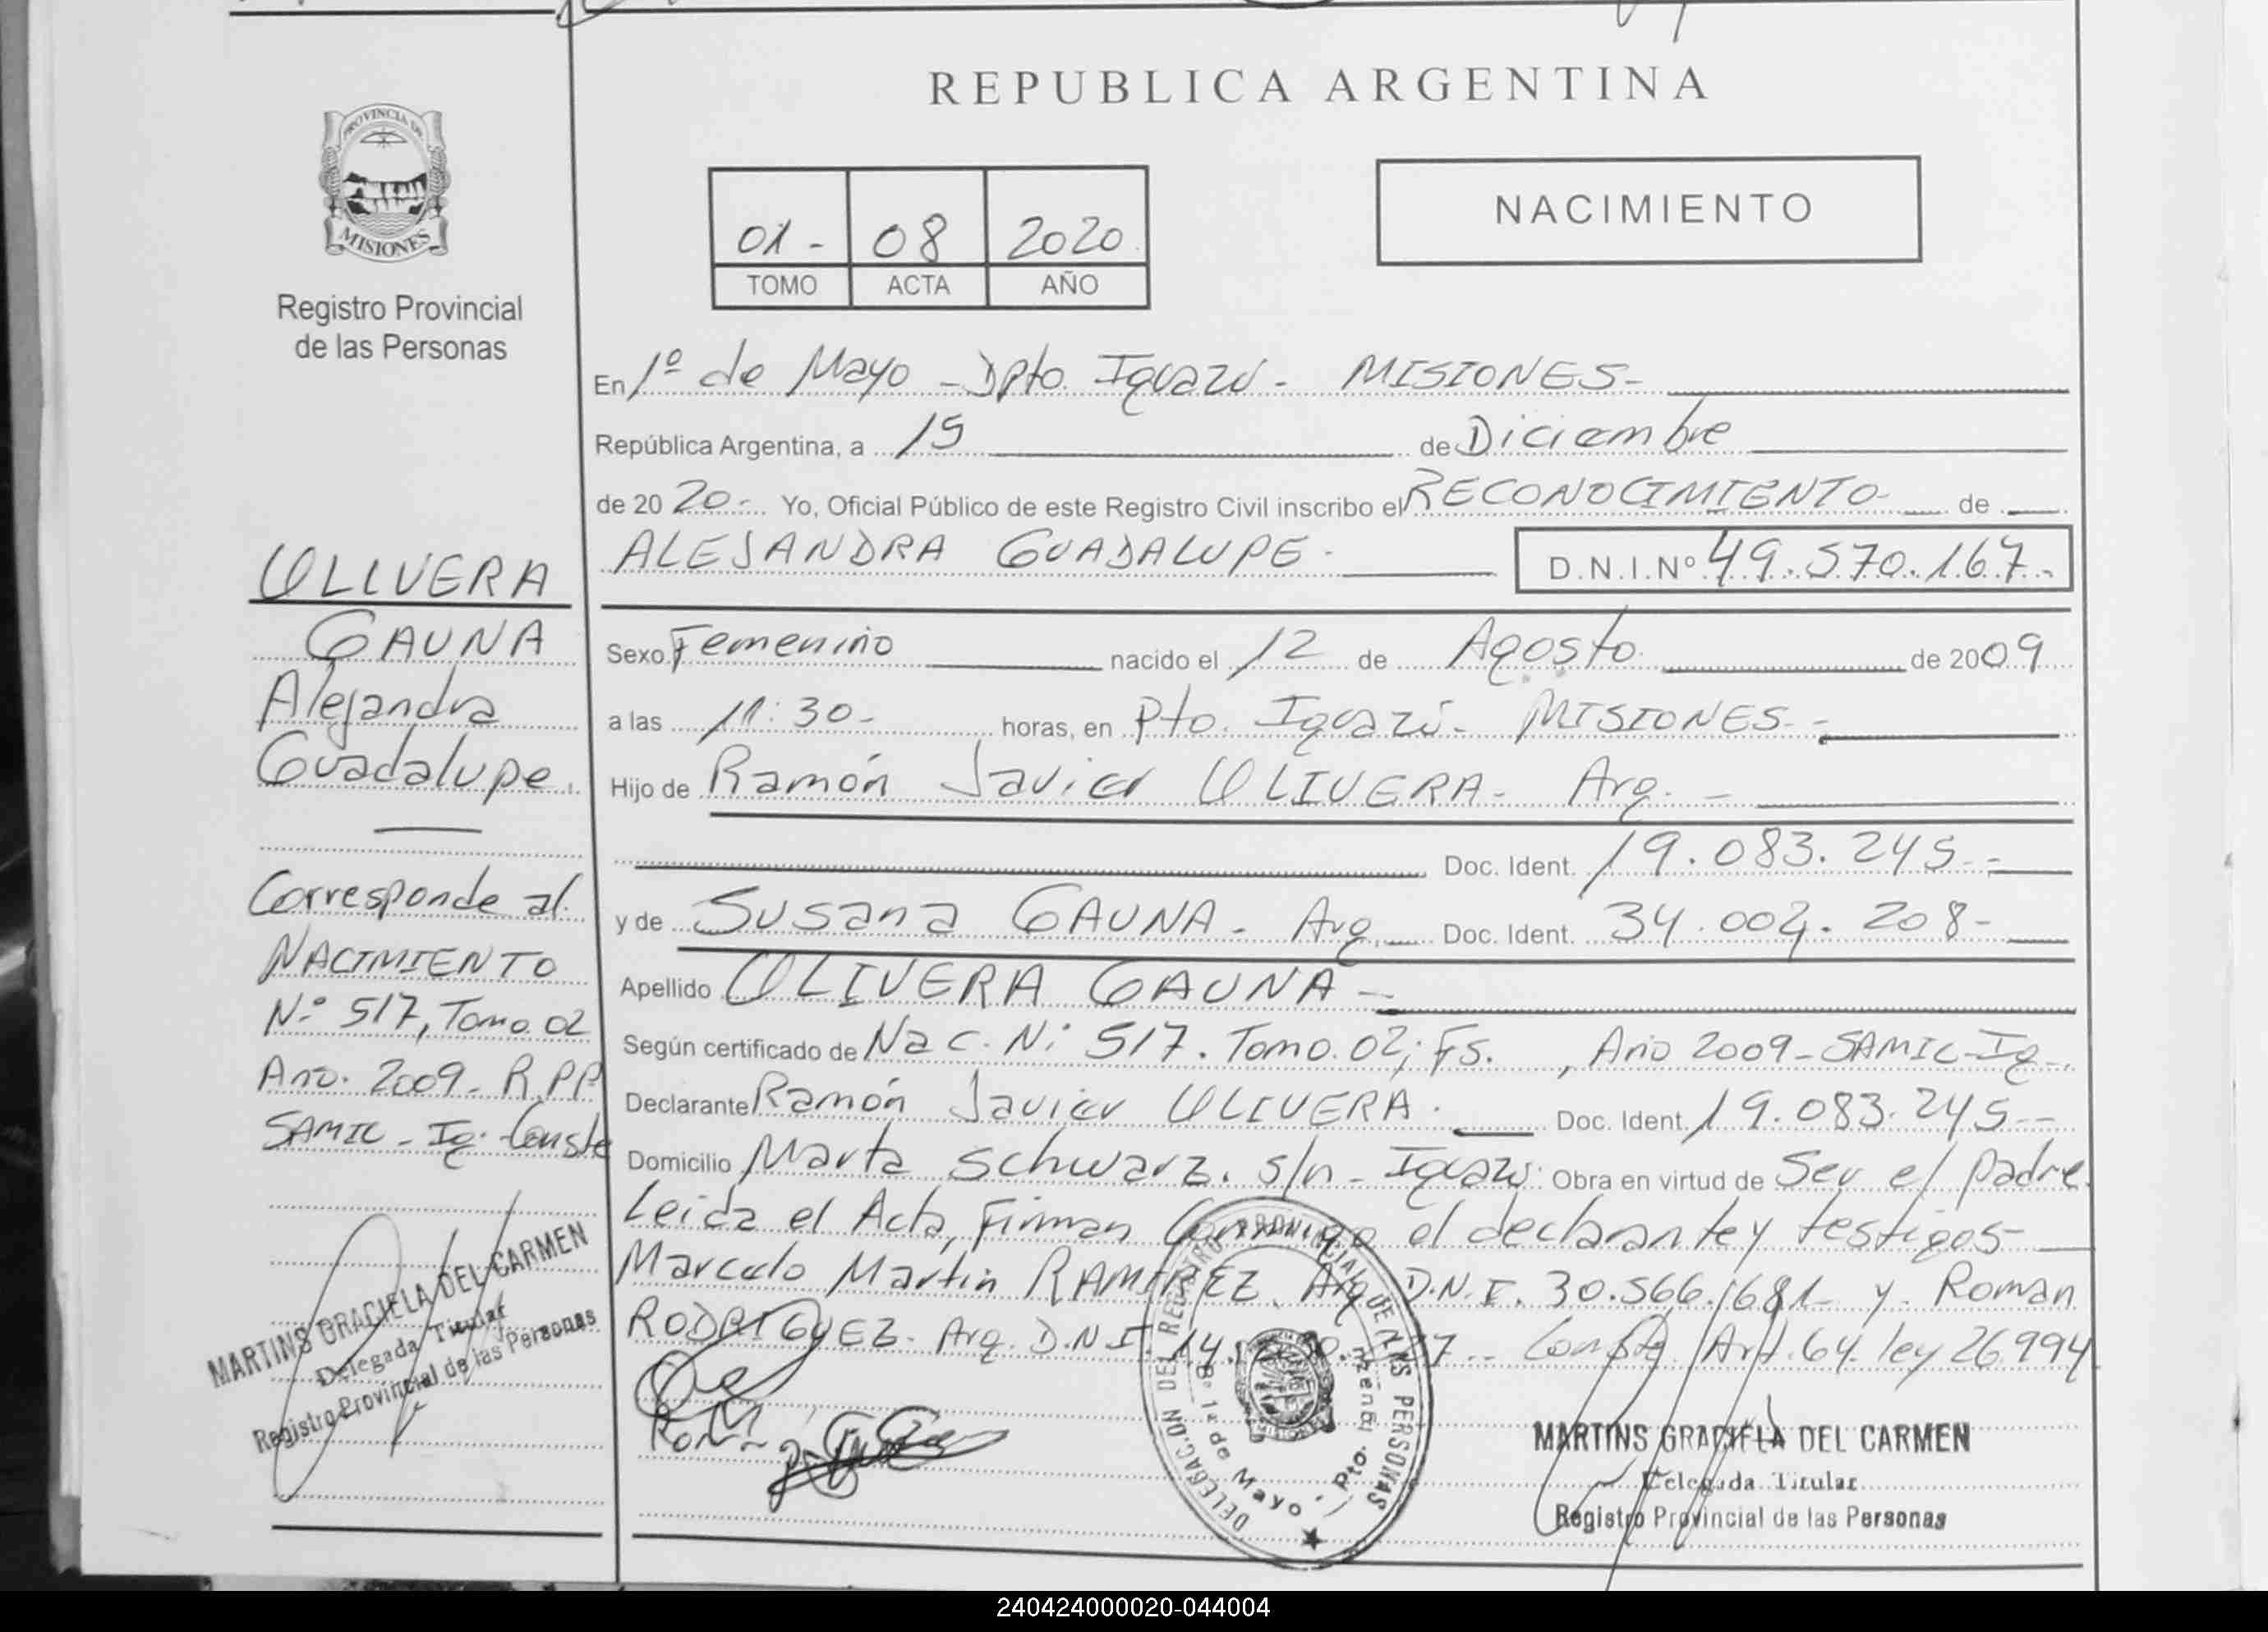 REPUBLICA ARGENTINA
PROVINCIA DE
MISIONES
Registro Provincial
de las Personas
01- 08 2020
TOMO ACTA AÑO
NACIMIENTO
En 1º de Mayo - Dpto. Iguazú - MISIONES-
República Argentina, a 15 de Diciembre
de 20 20.- Yo, Oficial Público de este Registro Civil inscribo el RECONOCIMIENTO- de
ALEJANDRA GUADALUPE.
D.N.I.Nº 49.570.167.-
Sexo Femenino nacido el 12 de Agosto de 2009
a las 11:30- horas, en Pto. Iguazú- MISIONES-
Hijo de Ramón Javier OLIVERA- Arg. -
Doc. Ident. 19.083.245-
y de Susana GAUNA- Arg. Doc. Ident. 34.004.208-
Apellido OLIVERA GAUNA-
Según certificado de Nac. Nº 517. Tomo.02; Fs. , Año 2009-SAMIC-Ig-.
Declarante Ramón Javier OLIVERA. Doc. Ident. 19.083.245-
Domicilio Marta Schwarz. s/n - Iguazú. Obra en virtud de Ser el padre.
Leida el Acta, Firman Conmigo el declarante y testigos-
Marcelo Martin RAMIREZ. Arg. D.N.I. 30.566.681- y Roman
RODRIGUEZ- Arg. D.N.I. 14. 7.- Conste Art. 64. ley 26.994
OLIVERA
GAUNA
Alejandra
Guadalupe.
Corresponde al
NACIMIENTO
Nº 517, Tomo.02
Año. 2009- R.PP
SAMIC - Ig. Conste
MARTINS GRACIELA DEL CARMEN
Delegada Titular
Registro Provincial de las Personas
DELEGACION DEL REGISTRO PROVINCIAL DE LAS PERSONAS
1º de Mayo - Pto.
MARTINS GRACIELA DEL CARMEN
Delegada Titular
Registro Provincial de las Personas
240424000020-044004